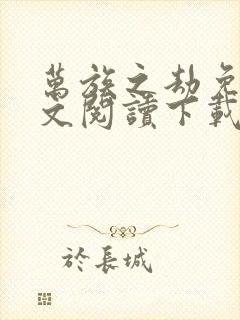 萬族之劫免
文閱讀下載
於長城